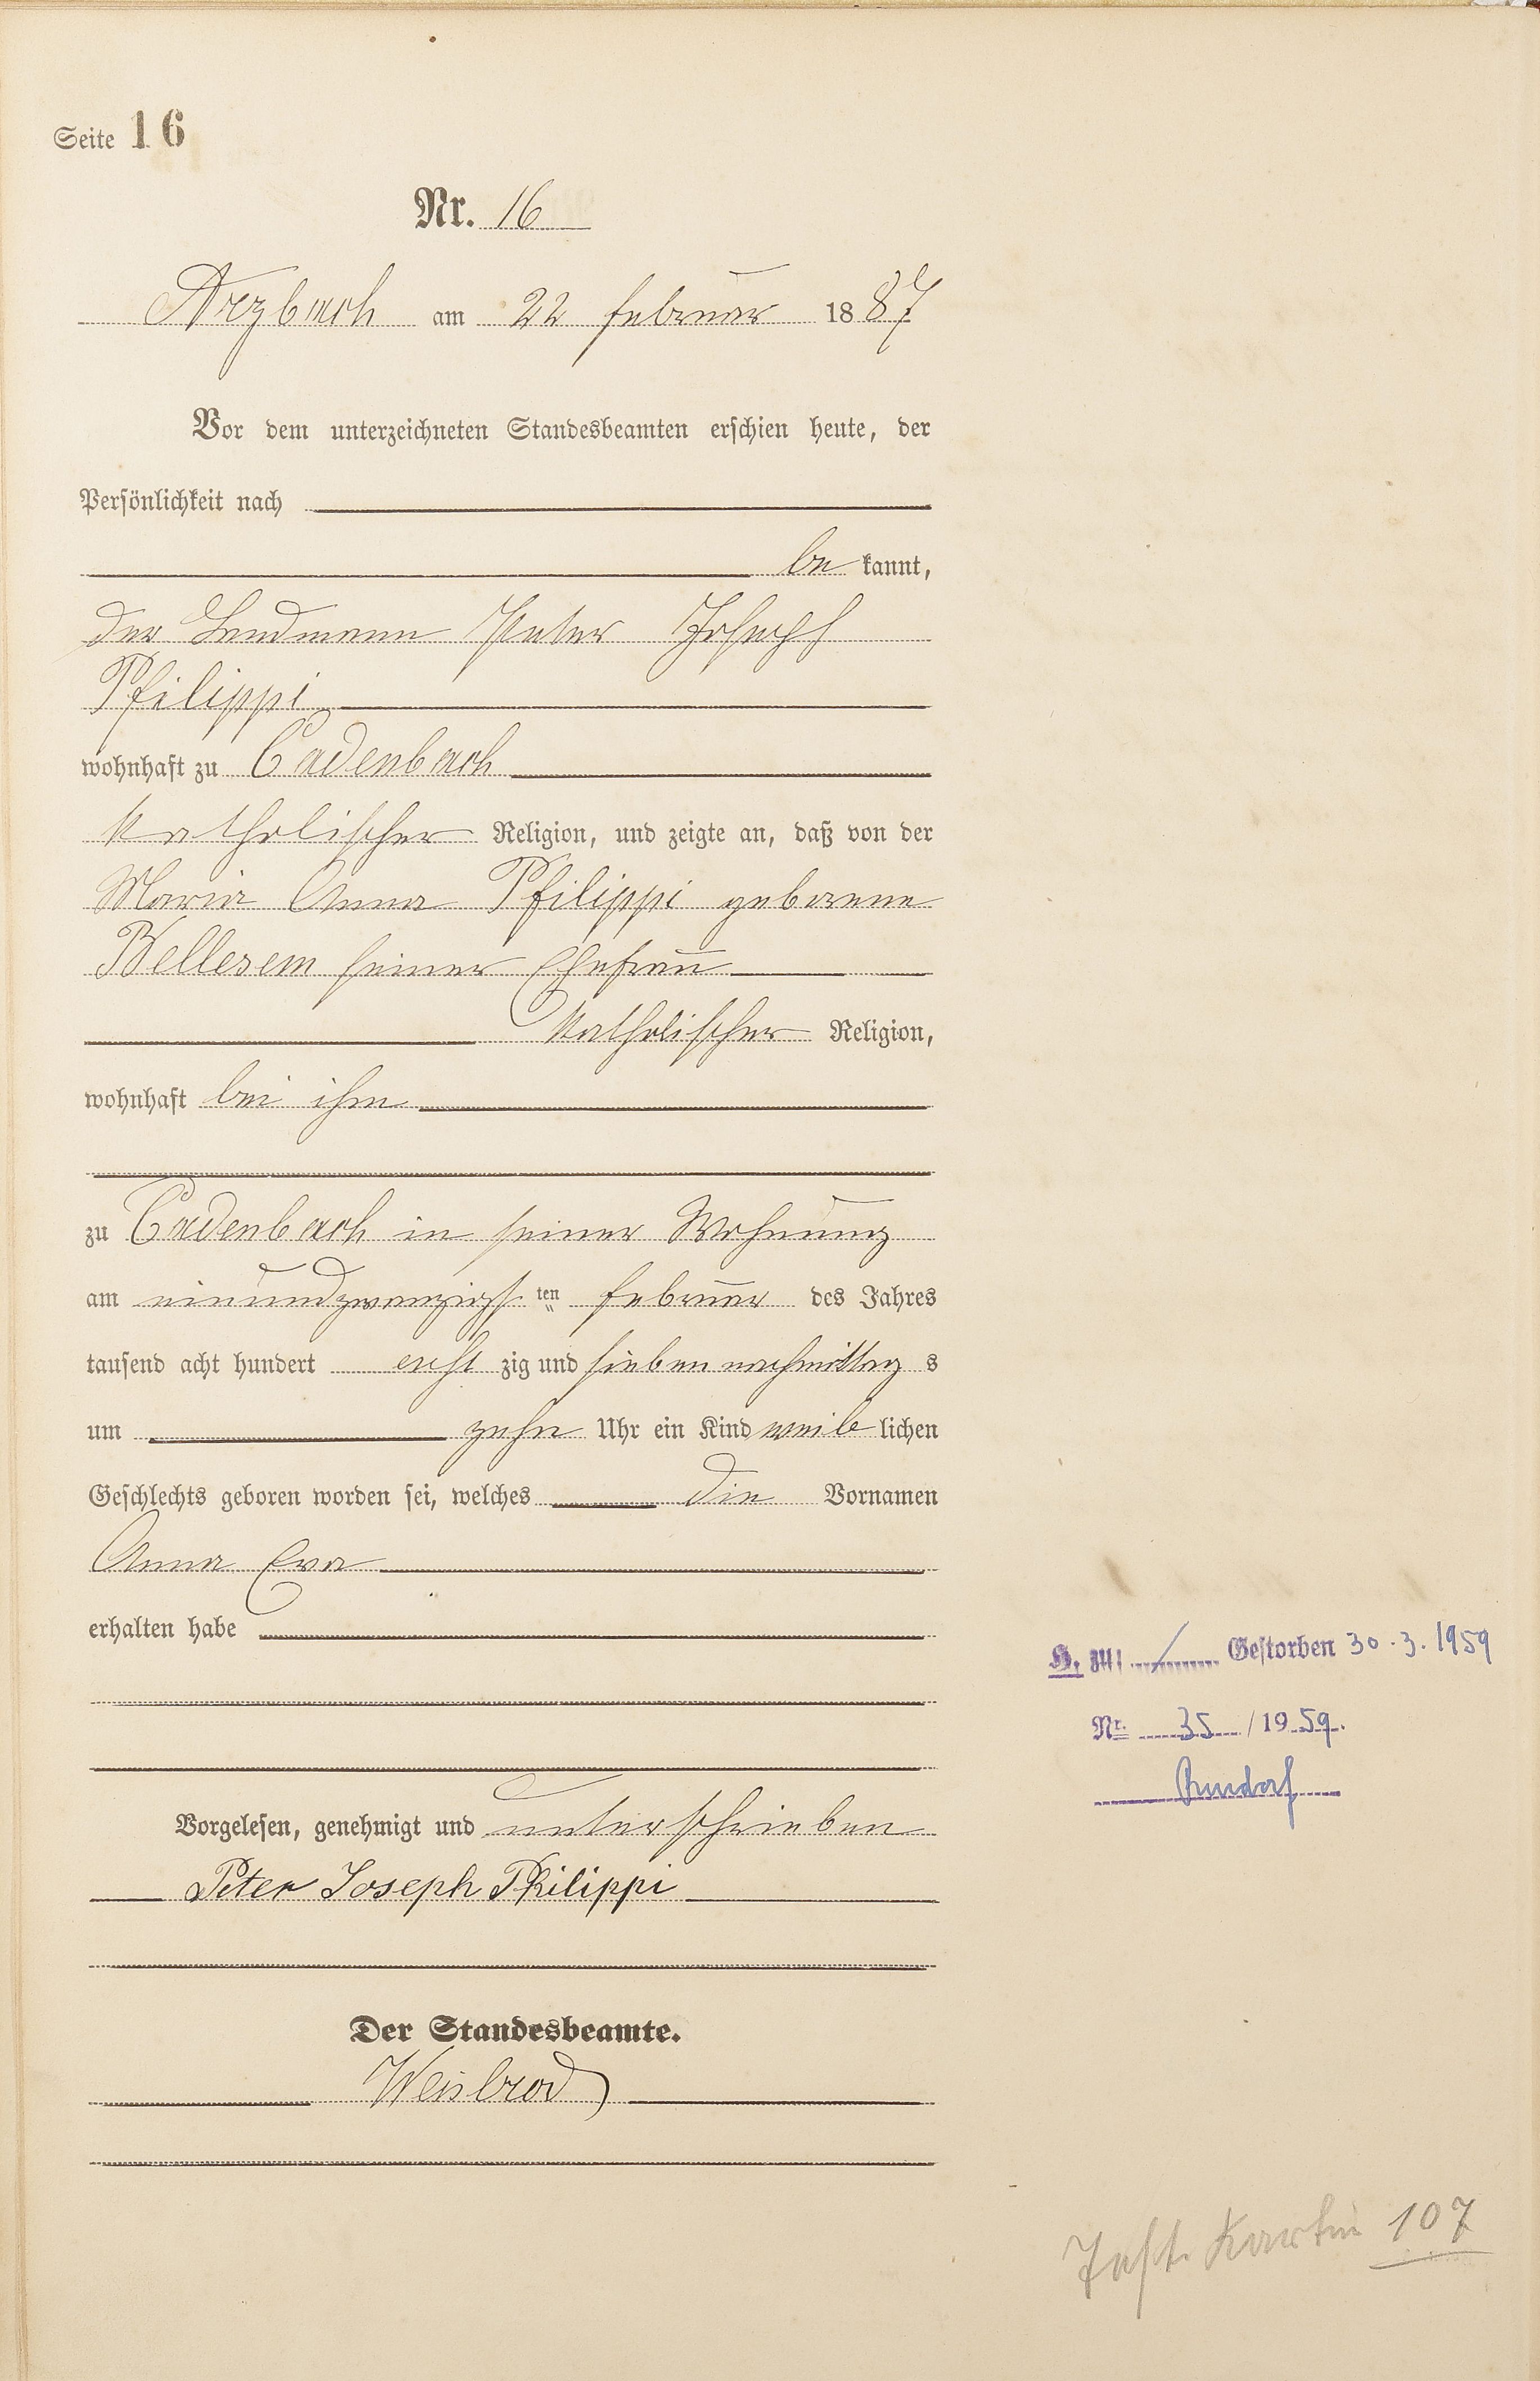 Seite 16
Nr. 16
Arzbach am 22 Februar 1887
Vor dem unterzeichneten Standesbeamten erschien heute, der
Persönlichkeit nach
be kannt,
der Landmann Peter Joseph
Philippi
wohnhaft zu Cadenbach
katholischer Religion, und zeigte an, daß von der
Maria Anna Philippi geborene
seiner Ehefrau
katholischer Religion,
wohnhaft bei ihm
zu Cadenbach in seiner Wohnung
am einundzwanzigsten Februar des Jahres
tausend acht hundert acht zig und sieben nachmittag s
um zehn Uhr ein Kind weib lichen
Geschlechts geboren worden sei, welches die Vornamen
Anna Eva
erhalten habe
Gestorben 30.3.1959
Nr. 35 / 1959.
Vorgelesen, genehmigt und unterschrieben
Peter Joseph Philippi
Der Standesbeamte.
Weisbrod
107